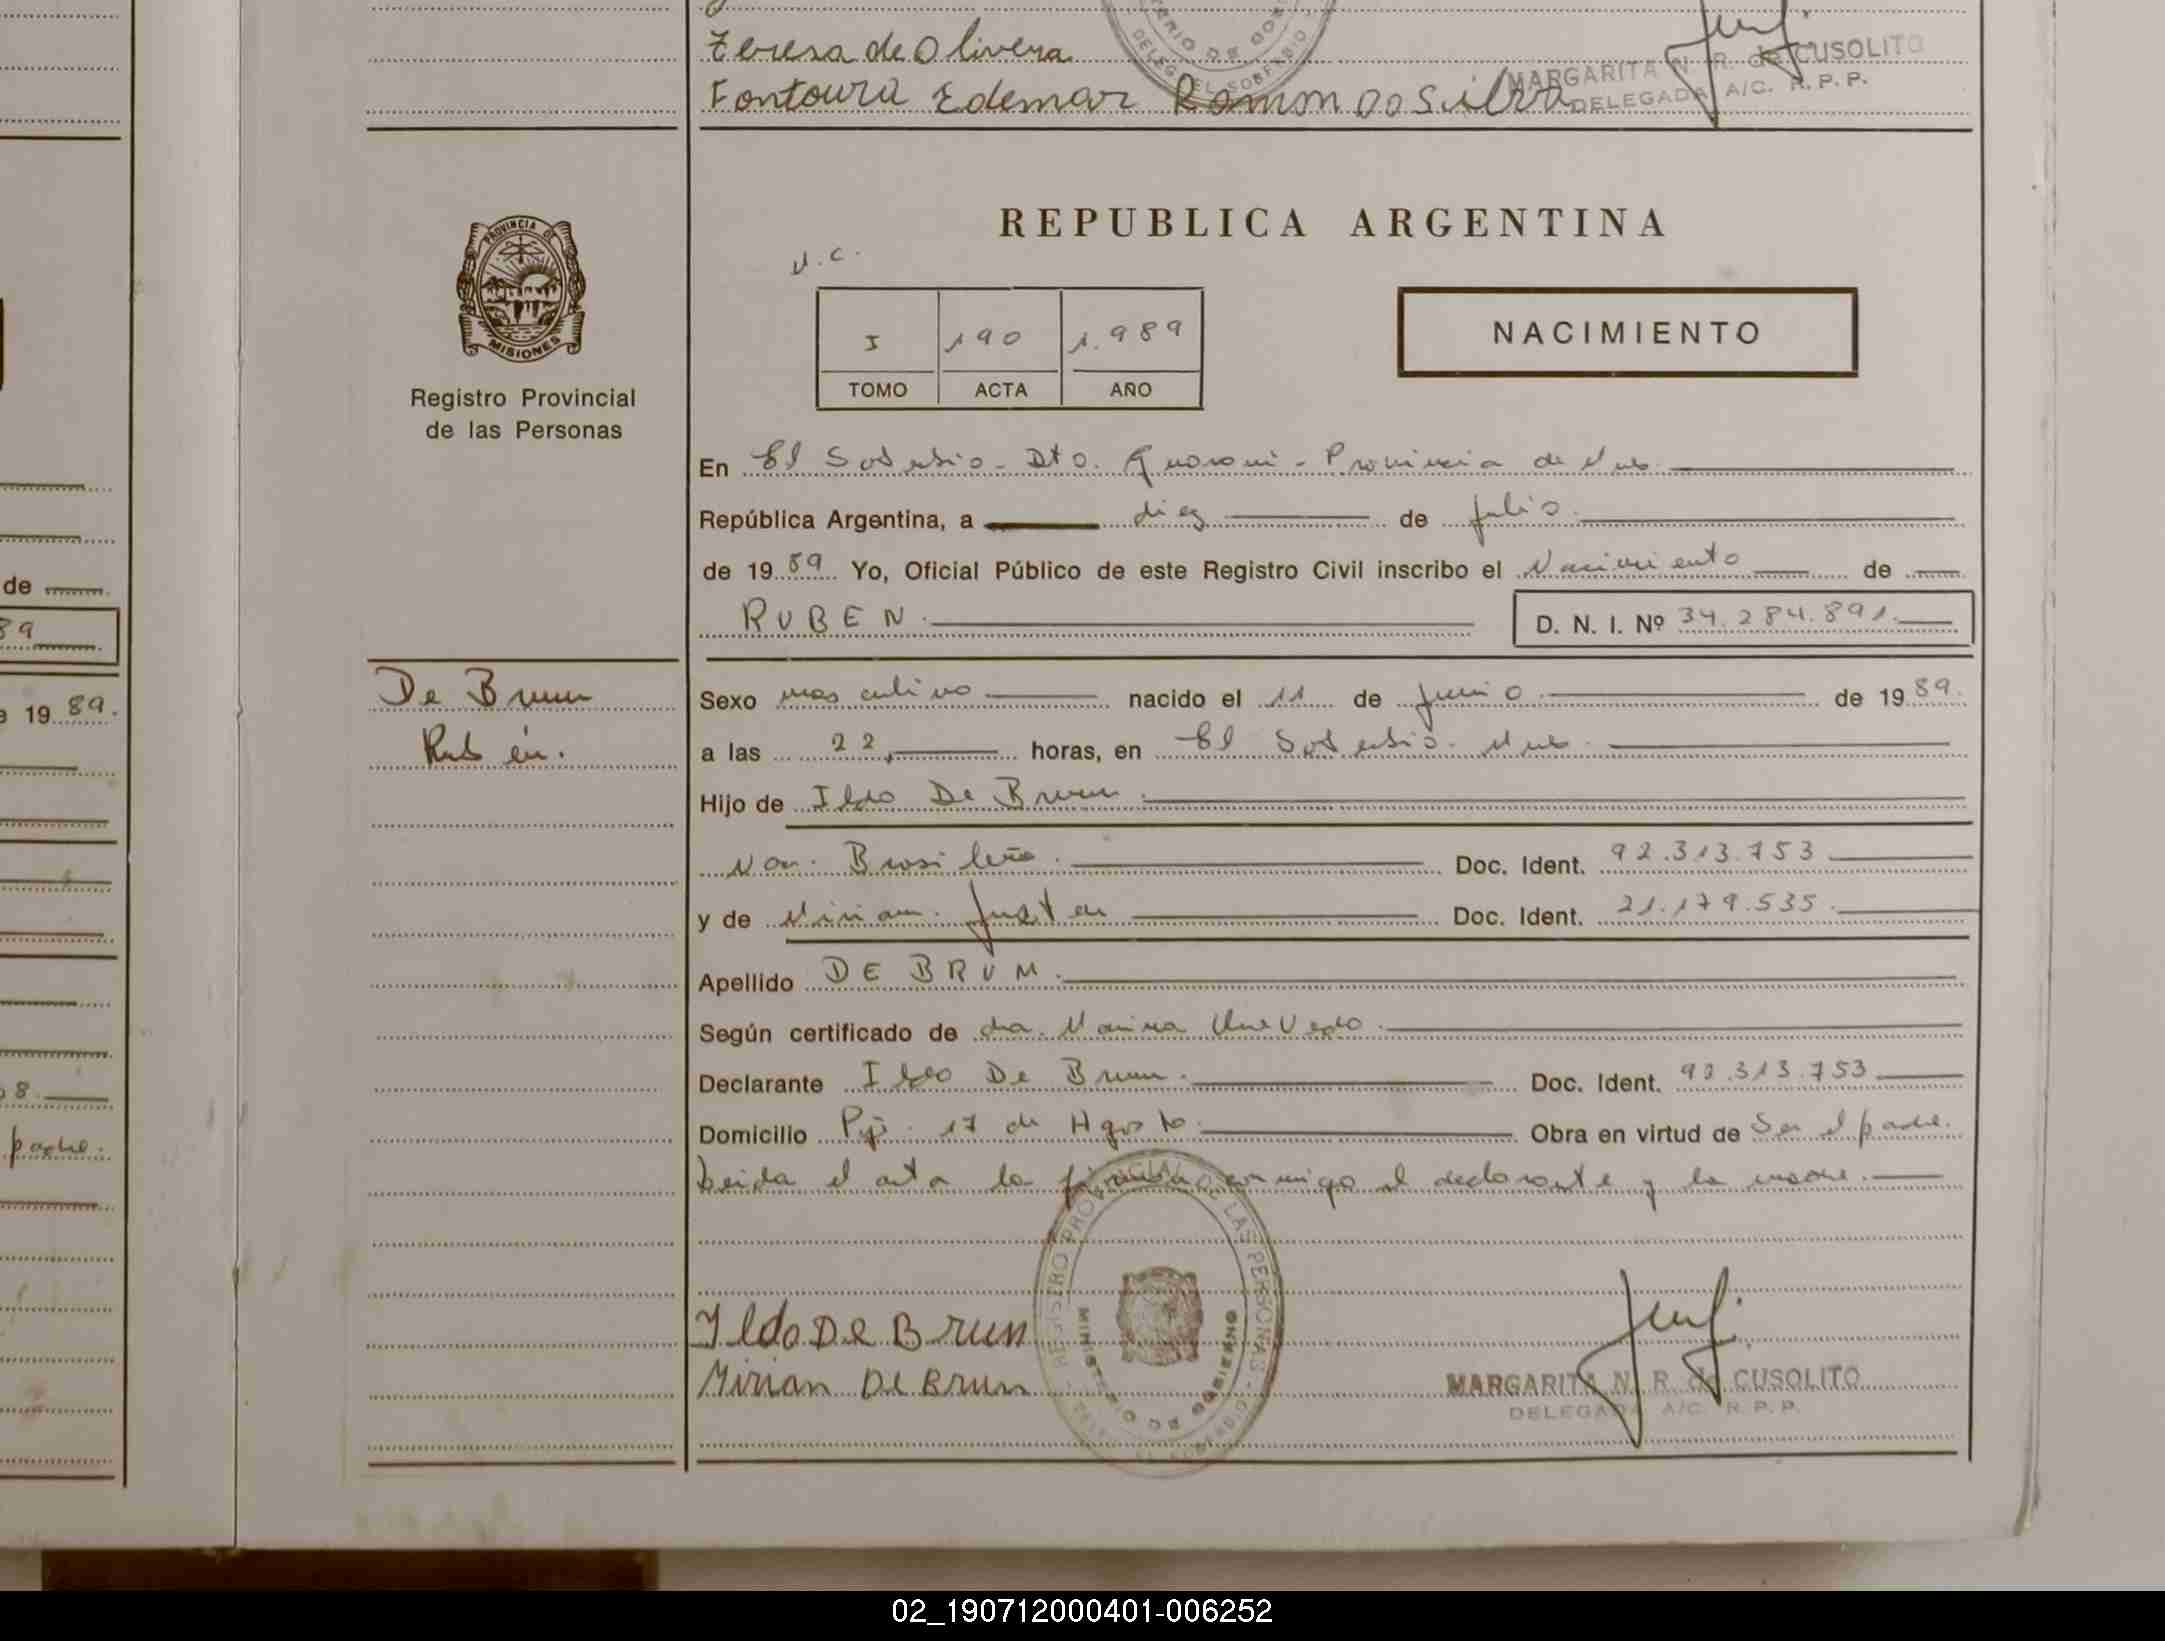 Teresa de Olivera
Fontoura Edemar Ramon Do Silva
MARGARITA N. R. de CUSOLITO
DELEGADA A/C. R.P.P.
PROVINCIA DE
MISIONES
Registro Provincial
de las Personas
REPUBLICA ARGENTINA
I 190 1.989
TOMO ACTA AÑO
NACIMIENTO
En El Soberbio - Dto. Guarani - Provincia de Mnes.
República Argentina, a diez de julio
de 1989 Yo, Oficial Público de este Registro Civil inscribo el Nacimiento de
RUBEN D. N. I. Nº 34.284.891.
De Brum
Rubén.
Sexo masculino nacido el 11 de junio de 1989.
a las 22, horas, en El Soberbio. Mnes.
Hijo de Ildo De Brum.
Nac. Brasileña. Doc. Ident. 92.313.753
y de Miriam Justen Doc. Ident. 21.179.535.
Apellido DE BRUM.
Según certificado de dra. Marina
Declarante Ildo De Brum. Doc. Ident. 92.313.753
Domicilio Pje. 17 de Agosto. Obra en virtud de Ser el padre.
Leida el acta la firman conmigo el declarante y la madre.
REGISTRO PROVINCIAL DE LAS PERSONAS
MINISTERIO DE GOBIERNO
Ildo De Brun
Mirian De Brun
MARGARITA N. R. de CUSOLITO
DELEGADA A/C. R.P.P.
de
89
e 19 89.
8.
padre.
02_190712000401-006252